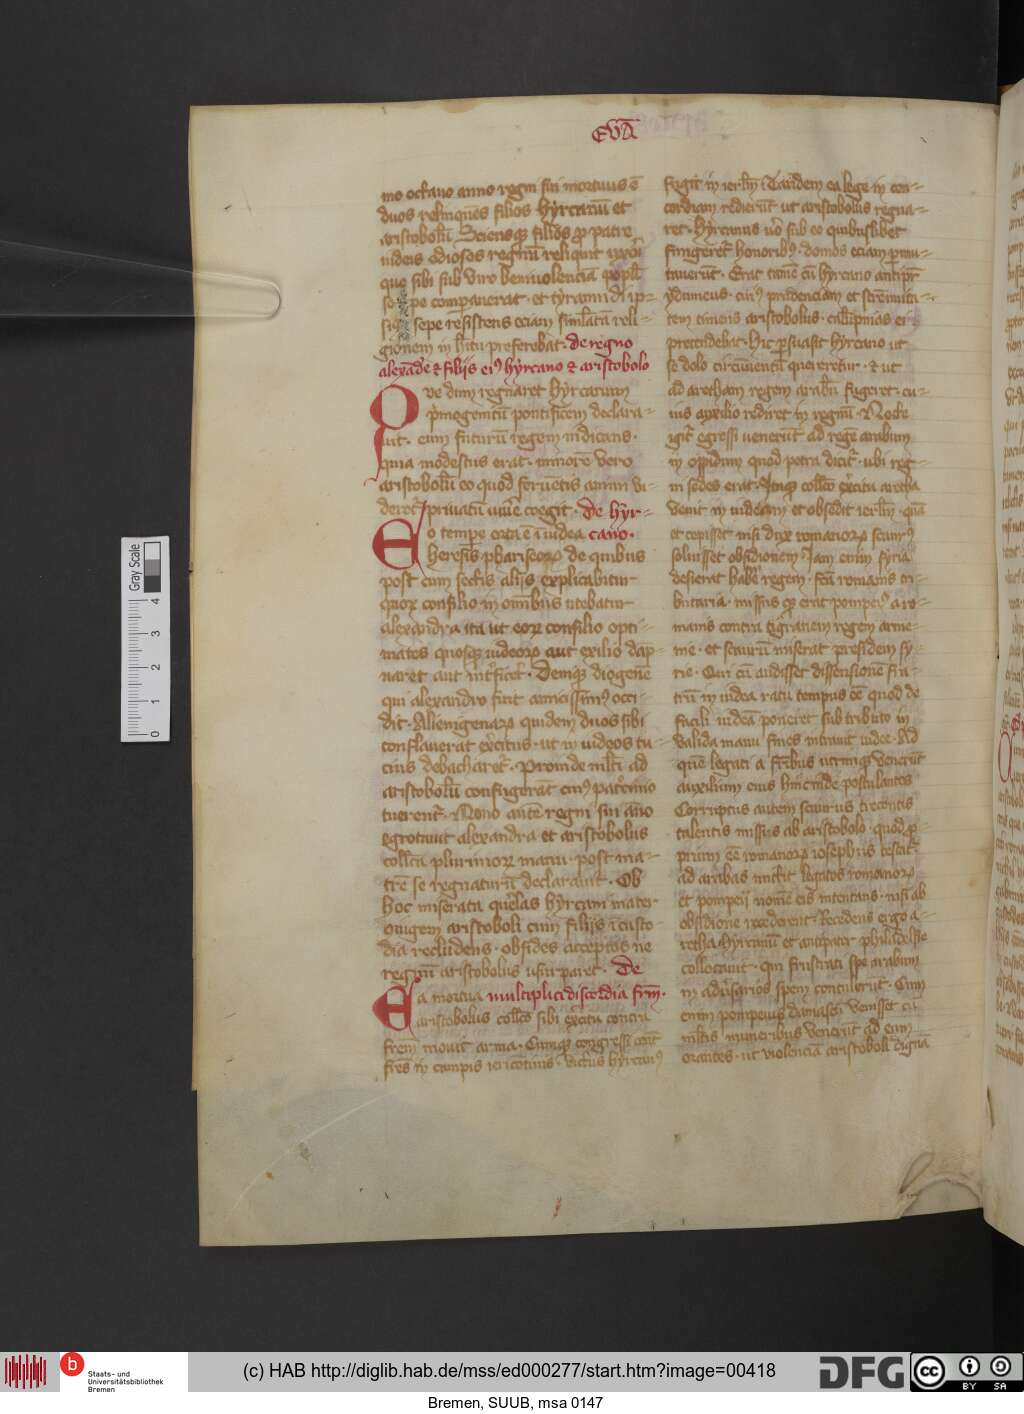 EVĀ
mo octauo anno regni sui mortuus ē
duos relinquēs filios hyrcanū et
aristobolū
que sibi sub viro beniuolenciā ppl̄i
pe comparauerat · et tyranni di ip-
sepe resistens eciam similatā reli-
gionem in hitu preferebat · de regno
alexādre ⁊ filiis eiꝰ hyrcano ⁊ aristobolo
ve dum regnaret hyrcanum
pͥmogenitū pontificem declara-
uit · eum futurū regem indicans ·
quia modestus erat · minorē vero
aristobolū eo quod feruētis animi vi-
deretᷣ priuatū viuͤe coegit · de hyr-
Eo tempe orta ē ī iudea cano ·
heresis phariseoꝝ de quibus
post cum sectis aliis explicabitur
quoꝝ consilio in omībus utebatur
alexandra ita ut eoꝝ consilio opti-
mates quosqꝫ iudeoꝝ aut exilio dāp-
naret aut int̉ficeret · Deniqꝫ diogenē
qui alexandro fuit amicissimꝰ occi-
dit · Alienigenaꝝ quidem duos sibi
conflauerat exͤcitus · ut in iudeos tu-
cius debacharetᷣ · Proinde ml̄ti ad
aristobolū confugerāt eiuꝰ patͦcinio
tuerentᷣ · Nono autē regni sui anno
egrotauit alexandra et aristobolus
coll̄ca plurimoꝝ manu · post ma-
trē se regnaturū declarauit · Ob
hoc miserata quͤlas hyrcani mater
ougem aristoboli cum filiis ī custo-
dia recludens · obsides acceptos ne
regnū aristobolus usurparet · De
Ea mortua multiplici discordia frm̄ ·
aristobolus coll̄co sibi exͤcitu contra
frēm mouit arma · Cumqꝫ congressi eēnt
frēs in campis iericōtinis · victus hyrcanꝰ
fugit in ierl̄m · Tandem ea lege in con-
cordiam redierūt ut aristobolus regna-
ret · hyrcanus uͦo sub eo quibuslibet
fungeretᷣ honoribꝫ · domos eciam pmu-
tauerūt · Erat tamē cū hyrcano antipr̄
ydumeus · cuiꝰ prudenciam et strēnuita-
tem timens aristobolus · calūpnias ei
pretendebat · hic psuasit hyrcano ut
se dolo circūuentū quereretur · ⁊ ut
ad aretham regem arabū fugeret · cu-
ius auxilio rediret in regnū · Nocte
igitᷣ egressi uenerūt ad regē arabum
in oppidum quod petra dicitᷣ · ubi reg-
ni sedes erat · Itaqꝫ coll̄co exͤcitu aretha
venit in iudeam et obsedit ierl̄m · quā
et cepisset nisi dux romanoꝝ scaurꝰ
soluisset obsidionem · Iam enim syria
desierat habͤe regem · fc̄a romanis tri-
butaria · missus qꝫ erat pompeiꝰ a ro-
manis contra tigranem regem arme-
nie · et scaurū miserat presidem sy-
rie · Qui cū audisset dissensionē fra-
trū in iudea ratū tempus eē quod de
facili iudeā poneret sub tributo in
valida manu fines intrauit iudee · Ad
quē legati a fr̄ibus utrimqꝫ venerūt
auxilium eius hincinde postulantes
Corruptus autem scaurus trecentis
talentis missus ab aristobolo · quod p-
prium eē romanoꝝ iosephus testatᷣ
ad arabas mittit legatos romanoꝝ
et pompeii nomē eis intentans · nisi ab
obsidione recederent · Recedens ergo a-
retha · hyrcanū et antipater philadelfie
collocauit · Qui frustrati spe arabum
in adùsarios spem contulerūt · Cum
enim pompeius damasci venisset cū
ml̄tis muneribus venerūt ad eum
orantes · ut violenciā aristoboli dignā
Gray Scale
0 1 2 3 4
b
Staats- und
Universitätsbibliothek
Bremen
(c) HAB http://diglib.hab.de/mss/ed000277/start.htm?image=00418
DFG
cc
BY SA
Bremen, SUUB, msa 0147